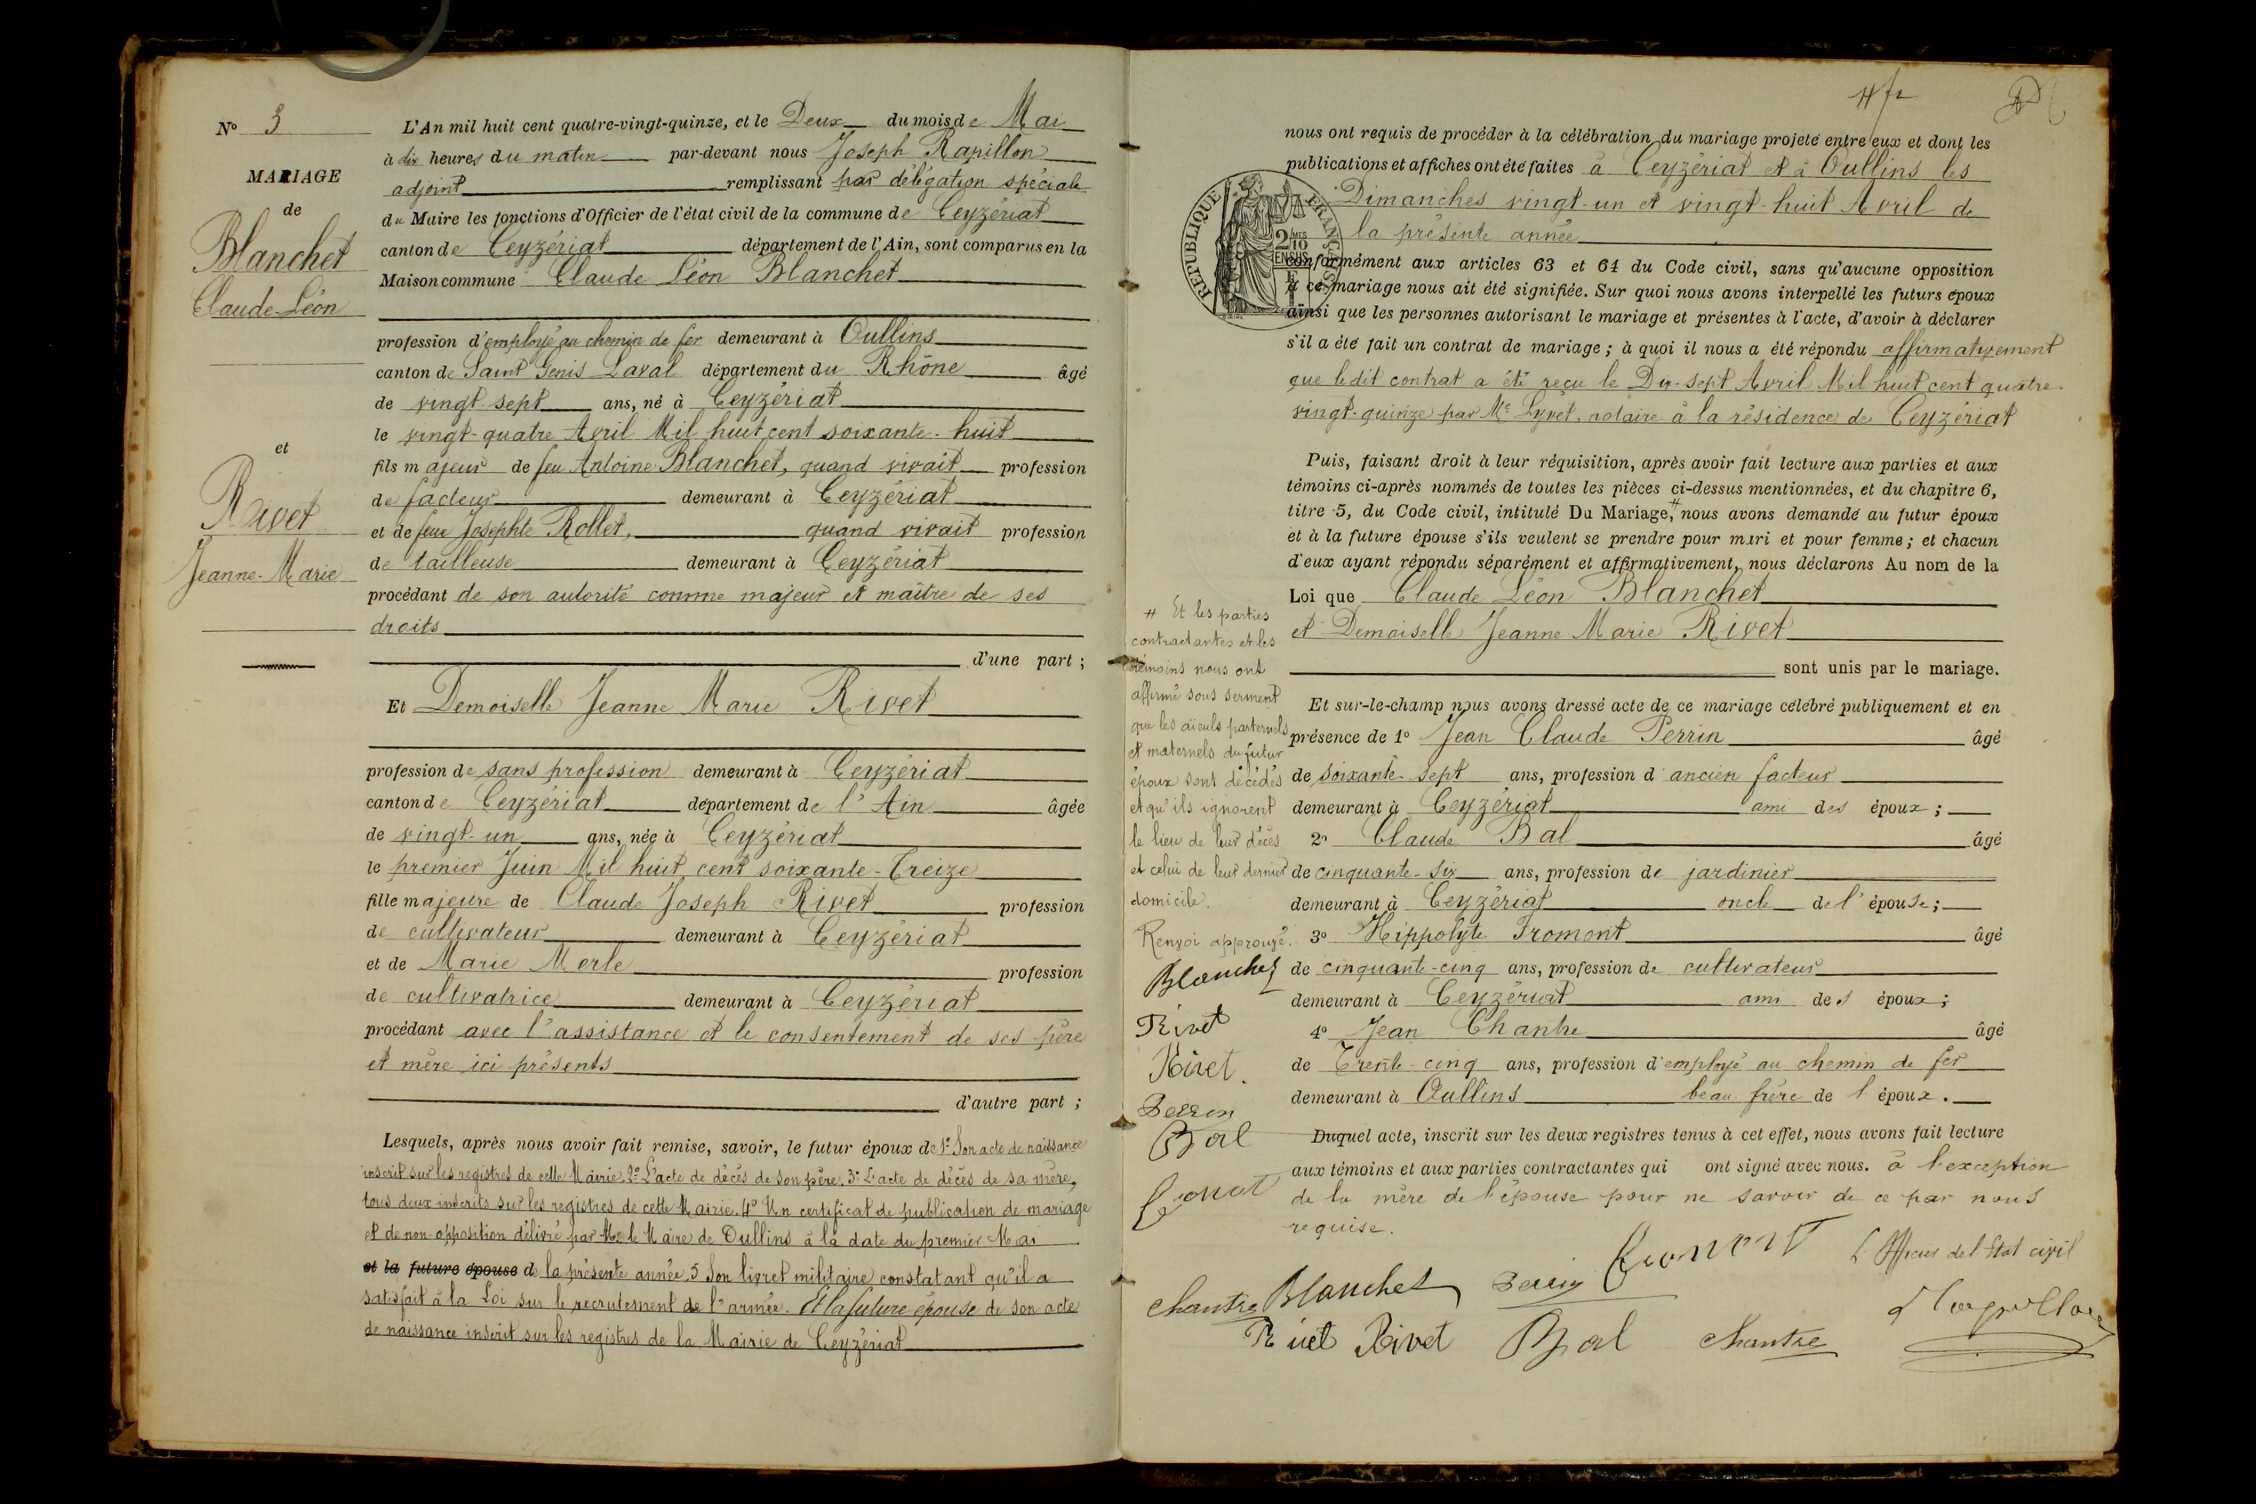 N° 3
MARIAGE
de
Blanchet
Claude-Léon
et
Rivet
Jeanne-Marie
L'An mil huit cent quatre-vingt-quinze, et le Deux du mois de Mai
à dix heures du matin par-devant nous Joseph Rapillon
adjoint remplissant par délégation spéciale
du Maire les fonctions d'Officier de l'état civil de la commune de Ceyzériat
canton de Ceyzériat département de l'Ain, sont comparus en la
Maison commune Claude Léon Blanchet
profession d'employé au chemin de fer demeurant à Oullins
canton de Saint Genis Laval département du Rhône âgé
de vingt-sept ans, né à Ceyzériat
le vingt-quatre Avril Mil huit cent soixante-huit
fils majeur de feu Antoine Blanchet, quand vivait profession
de facteur demeurant à Ceyzériat
et de feue Josephte Rollet, quand vivait profession
de tailleuse demeurant à Ceyzériat
procédant de son autorité comme majeur et maître de ses
droits
d'une part ;
Et Demoiselle Jeanne Marie Rivet
profession de sans profession demeurant à Ceyzériat
canton de Ceyzériat département de l'Ain âgée
de vingt-un ans, née à Ceyzériat
le premier Juin Mil huit cent soixante-Treize
fille majeure de Claude Joseph Rivet profession
de cultivateur demeurant à Ceyzériat
et de Marie Merle profession
de cultivatrice demeurant à Ceyzériat
procédant avec l'assistance et le consentement de ses père
et mère ici présents
d'autre part ;
Lesquels, après nous avoir fait remise, savoir, le futur époux de 1° Son acte de naissance
inscrit sur les registres de cette Mairie. 2° L'acte de décès de son père. 3° L'acte de décès de sa mère,
tous deux inscrits sur les registres de cette Mairie. 4° Un certificat de publication de mariage
et de non-opposition délivré par Mr le Maire de Oullins à la date du premier Mai
et la future épouse de la présente année. 5 Son livret militaire constatant qu'il a
satisfait à la Loi sur le recrutement de l'armée. Et la future épouse de son acte
de naissance inscrit sur les registres de la Mairie de Ceyzériat
nous ont requis de procéder à la célébration du mariage projeté entre eux et dont les
publications et affiches ont été faites à Ceyzériat et à Oullins les
Dimanches vingt-un et vingt-huit Avril de
la présente année
RÉPUBLIQUE FRANÇAISE
2/10 EN SUS
conformément aux articles 63 et 64 du Code civil, sans qu'aucune opposition
à ce mariage nous ait été signifiée. Sur quoi nous avons interpellé les futurs époux
ainsi que les personnes autorisant le mariage et présentes à l'acte, d'avoir à déclarer
s'il a été fait un contrat de mariage ; à quoi il nous a été répondu affirmativement
que ledit contrat a été reçu le Dix-sept Avril Mil huit cent quatre-
vingt-quinze par Me Lyvet, notaire à la résidence de Ceyzériat
Puis, faisant droit à leur réquisition, après avoir fait lecture aux parties et aux
témoins ci-après nommés de toutes les pièces ci-dessus mentionnées, et du chapitre 6,
titre 5, du Code civil, intitulé Du Mariage, # nous avons demandé au futur époux
et à la future épouse s'ils veulent se prendre pour mari et pour femme ; et chacun
d'eux ayant répondu séparément et affirmativement, nous déclarons Au nom de la
Loi que Claude Léon Blanchet
et Demoiselle Jeanne Marie Rivet
sont unis par le mariage.
# Et les parties
contractantes et les
témoins nous ont
affirmé sous serment
que les aïeuls paternels
et maternels du futur
époux sont décédés
et qu'ils ignorent
le lieu de leur décès
et celui de leur dernier
domicile.
Renvoi approuvé.
Blanchet
Rivet
Rivet.
Perrin
Bal
Et sur-le-champ nous avons dressé acte de ce mariage célébré publiquement et en
présence de 1° Jean Claude Perrin âgé
de soixante-sept ans, profession d'ancien facteur
demeurant à Ceyzériat ami des époux ;
2° Claude Bal âgé
de cinquante-six ans, profession de jardinier
demeurant à Ceyzériat oncle de l'épouse ;
3° Hippolyte Fromont âgé
de cinquante-cinq ans, profession de cultivateur
demeurant à Ceyzériat ami des époux ;
4° Jean Chantre âgé
de Trente-cinq ans, profession d'employé au chemin de fer
demeurant à Oullins beau frère de l'époux.
Duquel acte, inscrit sur les deux registres tenus à cet effet, nous avons fait lecture
aux témoins et aux parties contractantes qui ont signé avec nous. à l'exception
de la mère de l'épouse pour ne savoir de ce par nous
requise.
L'Officier de l'Etat civil
Chantre Blanchet Perrin Fromont
Rivet Rivet Bal Chantre J Rapillon